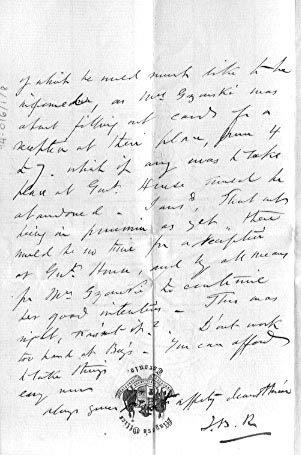 of which he would much like to be
informed, as Mrs Gzowski was
about filling out cards for a
reception at their place, from 4
to 7. which if any was to take
place at Govt. House would be
abandoned - I said, that not
being in possession as yet, there
would be no time for a reception
at Govt House, and by all means
for Mrs Gzowski to continue
her good intention - This was
right, wasn't it? Don't work
too hard at Bay's - You can afford
to take things
easy now
always yours affectly dear
J.B.R.
44.016/1/8
Mayor's Office
Toronto